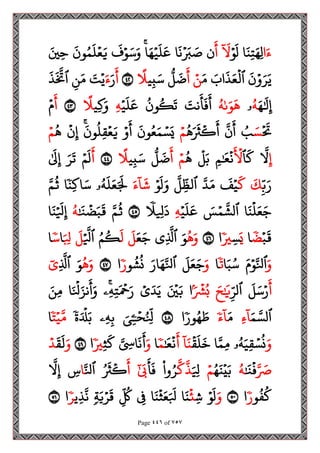 ءَالِهَتِنَا لَوْلَآ أَن صَبَرْنَا عَلَيْهَا ۚ وَسَوْفَ يَعْلَمُونَ حِينَ
يَرَوْنَ ٱلْعَذَابَ مَنْ أَضَلُّ سَبِيلًا ٤٢ أَرَءَيْتَ مَنِ ٱتَّخَذَ
إِلَٰهَهُۥ هَوَىٰهُ أَفَأَنتَ تَكُونُ عَلَيْهِ وَكِيلًا ٤٣ أَمْ
تَحْسَبُ أَنَّ أَكْثَرَهُمْ يَسْمَعُونَ أَوْ يَعْقِلُونَ ۚ إِنْ هُمْ
إِلَّا كَٱلْأَنْعَٰمِ بَلْ هُمْ أَضَلُّ سَبِيلًا ٤٤ أَلَمْ تَرَ إِلَىٰ
رَبِّكَ كَيْفَ مَدَّ ٱلظِّلَّ وَلَوْ شَآءَ لَجَعَلَهُۥ سَاكِنًا ثُمَّ
جَعَلْنَا ٱلشَّمْسَ عَلَيْهِ دَلِيلًا ٤٥ ثُمَّ قَبَضْنَٰهُ إِلَيْنَا
قَبْضًا يَسِيرًا ٤٦ وَهُوَ ٱلَّذِى جَعَلَ لَكُمُ ٱلَّيْلَ لِبَاسًا
وَٱلنَّوْمَ سُبَاتًا وَجَعَلَ ٱلنَّهَارَ نُشُورًا ٤٧ وَهُوَ ٱلَّذِىٓ
أَرْسَلَ ٱلرِّيَٰحَ بُشْرًۢا بَيْنَ يَدَىْ رَحْمَتِهِۦ ۚ وَأَنزَلْنَا مِنَ
ٱلسَّمَآءِ مَآءً طَهُورًا ٤٨ لِّنُحْـِۧىَ بِهِۦ بَلْدَةً مَّيْتًا
وَنُسْقِيَهُۥ مِمَّا خَلَقْنَآ أَنْعَٰمًا وَأَنَاسِىَّ كَثِيرًا ٤٩ وَلَقَدْ
صَرَّفْنَٰهُ بَيْنَهُمْ لِيَذَّكَّرُوا۟ فَأَبَىٰٓ أَكْثَرُ ٱلنَّاسِ إِلَّا
كُفُورًا ٥٠ وَلَوْ شِئْنَا لَبَعَثْنَا فِى كُلِّ قَرْيَةٍ نَّذِيرًا ٥١
Page ٤٤٦ of ٧٥٧